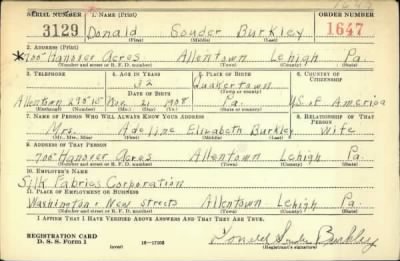 SERIAL NUMBER 1. NAME (Print) ORDER NUMBER
3129 Donald Souder Burkley 1647
(First) (Middle) (Last)
2. ADDRESS (Print)
*700 Hanover Acres Allentown Lehigh Pa.
(Number and street or R. F. D. number) (Town) (County) (State)
3. TELEPHONE 4. AGE IN YEARS 5. PLACE OF BIRTH 6. COUNTRY OF CITIZENSHIP
32 Quakertown
DATE OF BIRTH (Town or county)
Allentown Mar 21 1908 Pa. U.S. of America
(Exchange) (Number) (Mo.) (Day) (Yr.) (State or country)
7. NAME OF PERSON WHO WILL ALWAYS KNOW YOUR ADDRESS 8. RELATIONSHIP OF THAT PERSON
Mrs. Adeline Elizabeth Burkley Wife
(Mr., Mrs., Miss) (First) (Middle) (Last)
9. ADDRESS OF THAT PERSON
700 Hanover Acres Allentown Lehigh Pa.
(Number and street or R. F. D. number) (Town) (County) (State)
10. EMPLOYER'S NAME
Silk Fabrics Corporation
11. PLACE OF EMPLOYMENT OR BUSINESS
Washington & New Streets Allentown Lehigh Pa.
(Number and street or R. F. D. number) (Town) (County) (State)
I AFFIRM THAT I HAVE VERIFIED ABOVE ANSWERS AND THAT THEY ARE TRUE.
REGISTRATION CARD
D. S. S. Form 1 (over) 16—17105 Donald Souder Burkley
(Registrant's signature)